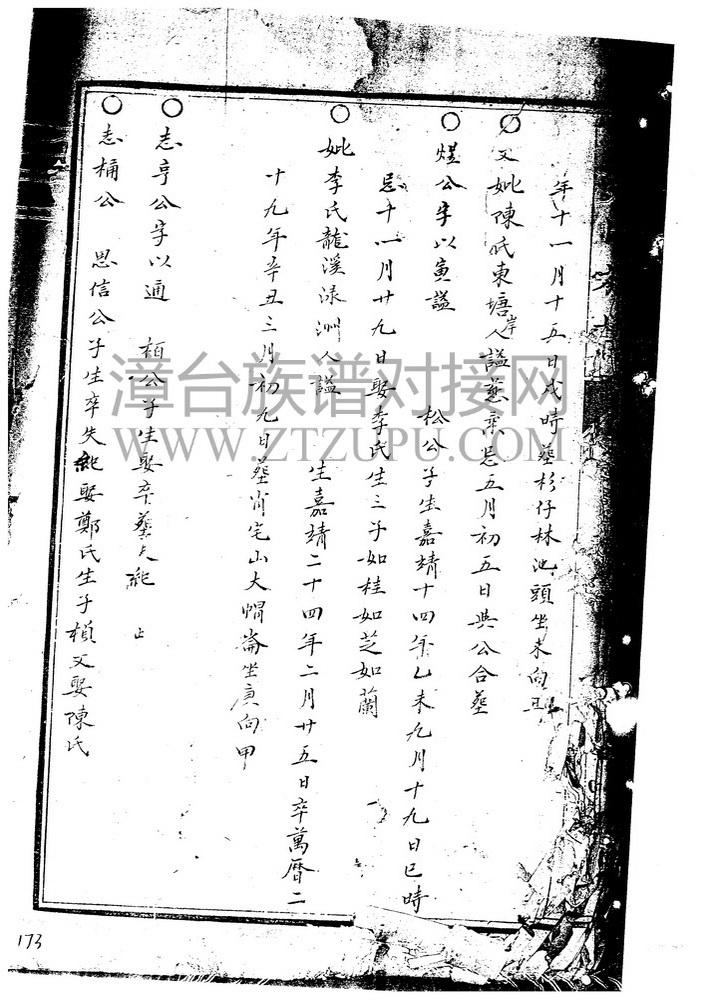 年十一月十五日戌時葬杉仔林池頭坐未向丑
〇又妣陳氏東塘岸人謚慈 卒忌五月初五日與公合葬
〇煜公字以寅謚 松公子生嘉靖十四年乙未九月十九日巳時
忌十一月廿九日娶李氏生三子如桂如芝如蘭
〇妣李氏龍溪淥洲人謚 生嘉靖二十四年二月廿五日卒萬曆二
十九年辛丑三月初九日葬宅山大帽崙坐庚向甲
〇志亨公字以通 栢公子生娶卒葬失紀 止
〇志桶公 思信公子生卒失紀娶鄭氏生子楨又娶陳氏
173
漳台族谱对接网
WWW.ZTZUPU.COM